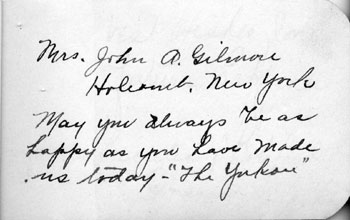 Mrs. John A. Gilmore
Holcomb, New York
May you always be as
happy as you have made
us today - "The Yukon"